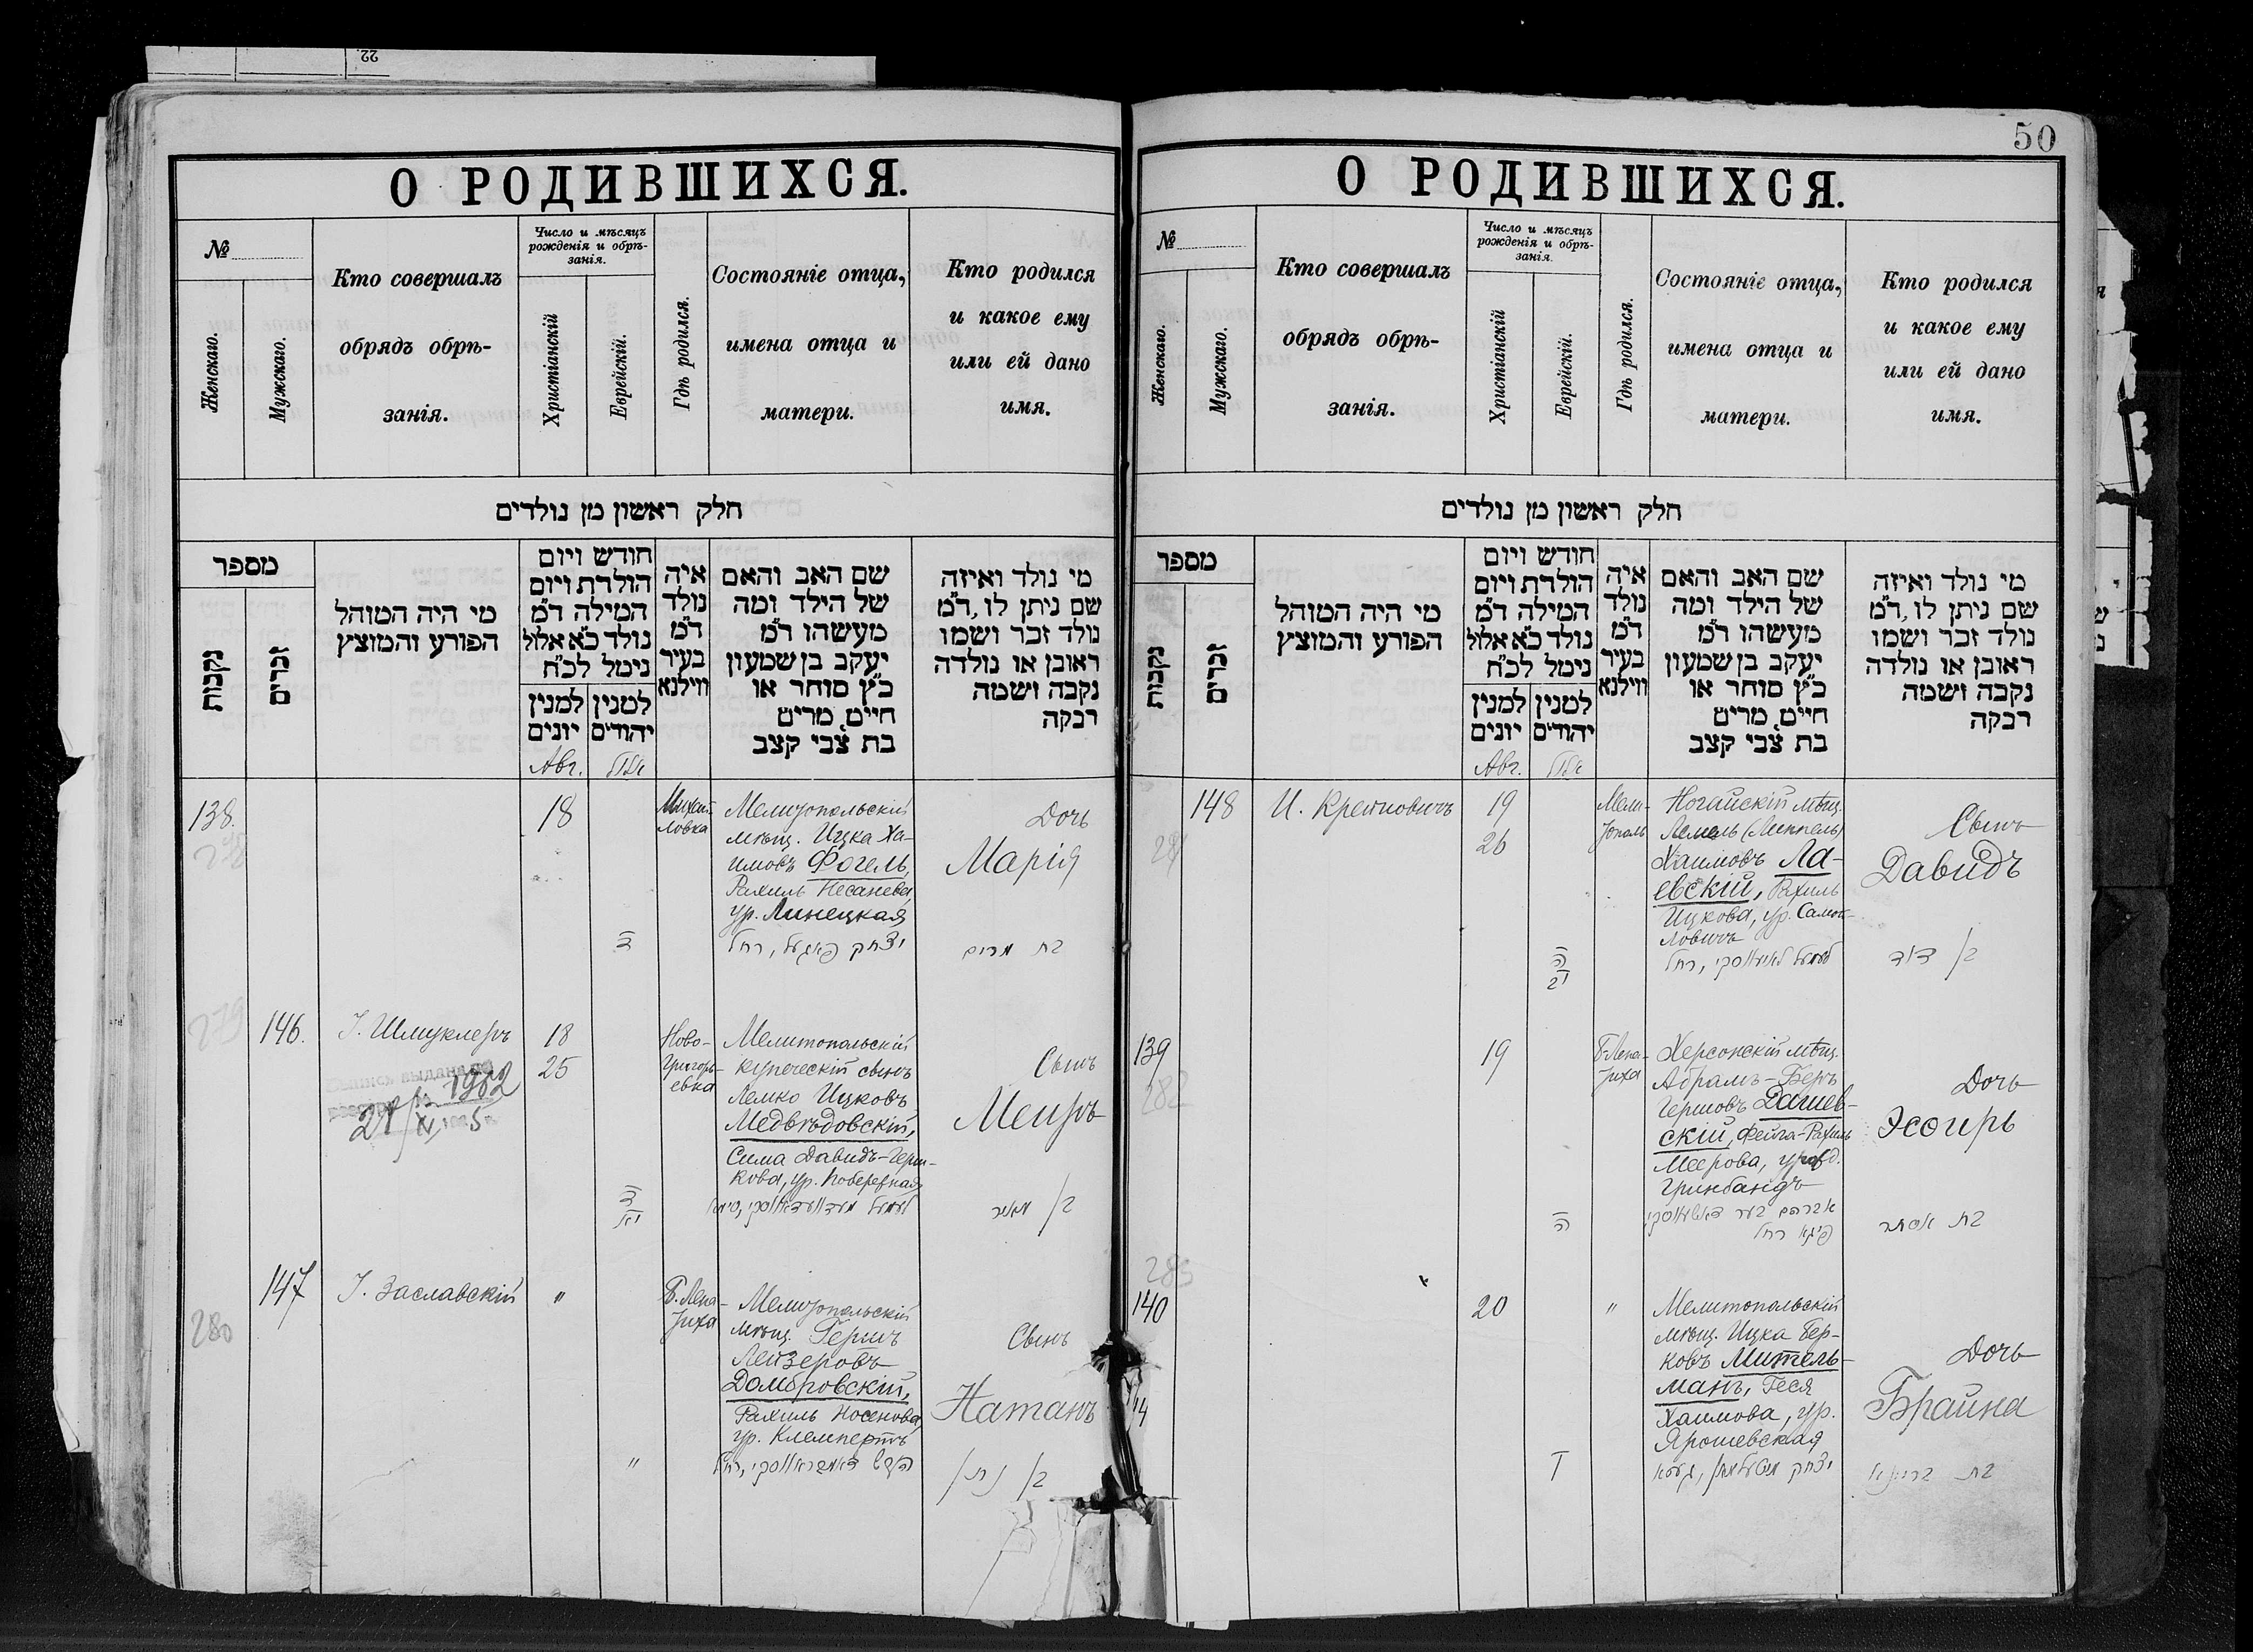 22
50
О РОДИВШИХСЯ.
№
Женскаго.
Мужскаго.
Кто совершалъ
обрядъ обрѣ-
занія.
Число и мѣсяцъ
рожденія и обрѣ-
занія.
Христіанскій
Еврейскій.
Гдѣ родился.
Состояніе отца,
имена отца и
матери.
Кто родился
и какое ему
или ей дано
имя.
חלק ראשון מן נולדים
מספר
נקבות
זכרים
מי היה המוהל
הפורע והמוצץ
חודש ויום
הולדת ויום
המילה ד״מ
נולד כ״א אלול
נימל לכ״ח
למנין
יונים
למנין
יהודים
איה
נולד
ד״מ
בעיר
ווילנא
שם האב והאם
של הילד ומה
מעשהו ד״מ
יעקב בן שמעון
כ״ץ סוחר או
חיים, מרים
בת צבי קצב
מי נולד ואיזה
שם ניתן לו, ד״מ
נולד זכר ושמו
ראובן או נולדה
נקבה ושמה
רבקה
Авг.
אלול
138.
18
Михай-
ловка
Мелитопольскій
мѣщ. Ицка Ха-
имовъ Фогель,
Рахиль Несанева,
ур. Линецкая
יצחק פאגעל, רחל
Дочь
Марія
בת מרים
279
146.
І. Шмуклеръ
18
25
Ново-
Григорь-
евка
Мелитопольскій
купеческій сынъ
Лемко Ицковъ
Медвѣдовскій,
Сима Давидъ-Герш-
кова, ур. Побережная
Сынъ
Меиръ
בן מאיר
1982
280
147
І. Заславскій
"
Б. Лепа-
тиха
Мелитопольскій
мѣщ. Гершъ
Лейзеровъ
Домбровскій,
Рахиль Носенова,
ур. Клемпертъ
"
Сынъ
Натанъ
בן נתן
О РОДИВШИХСЯ.
№
Женскаго.
Мужскаго.
Кто совершалъ
обрядъ обрѣ-
занія.
Число и мѣсяцъ
рожденія и обрѣ-
занія.
Христіанскій
Еврейскій.
Гдѣ родился.
Состояніе отца,
имена отца и
матери.
Кто родился
и какое ему
или ей дано
имя.
חלק ראשון מן נולדים
מספר
נקבות
זכרים
מי היה המוהל
הפורע והמוצץ
חודש ויום
הולדת ויום
המילה ד״מ
נולד כ״א אלול
נימל לכ״ח
למנין
יונים
למנין
יהודים
איה
נולד
ד״מ
בעיר
ווילנא
שם האב והאם
של הילד ומה
מעשהו ד״מ
יעקב בן שמעון
כ״ץ סוחר או
חיים, מרים
בת צבי קצב
מי נולד ואיזה
שם ניתן לו, ד״מ
נולד זכר ושמו
ראובן או נולדה
נקבה ושמה
רבקה
Авг.
אלול
148
19
26
Мели-
тополь
Ногайскій мѣщ.
Лемель (Липпель)
Хаимовъ Ла-
евскій, Рахиль
Ицкова, ур. Самой-
ловичъ
Сынъ
Давидъ
בן דוד
139
282
19
Б. Лепа-
тиха
Херсонскій мѣщ.
Абрамъ-Беръ
Гершовъ Дашев-
скій, Фейга-Рахиль
Меерова, урожд.
Гринбандъ
פיגא רחל
Дочь
Эсѳирь
בת אסתר
283
140
20
"
Мелитопольскій
мѣщ. Ицка Бер-
ковъ Митель-
манъ, Геся
Хаимова, ур.
Ярошевская
יצחק מיטעלמאן, געסא
Дочь
Брайна
בת בריינא